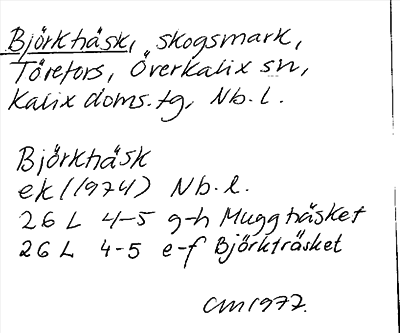 Björkhåsk, skogsmark,
Törefors, Överkalix sn,
Kalix doms.tg, Nb.l.
Björkhåsk
ek (1974) Nb.l.
26 L 4-5 g-h Muggträsket
26 L 4-5 e-f Björkträsket
CM 1977.